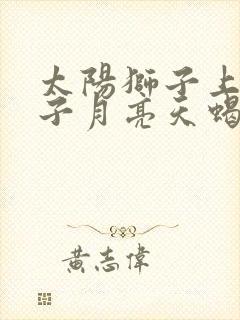 太陽獅子上
子月亮天蝎
黃志偉